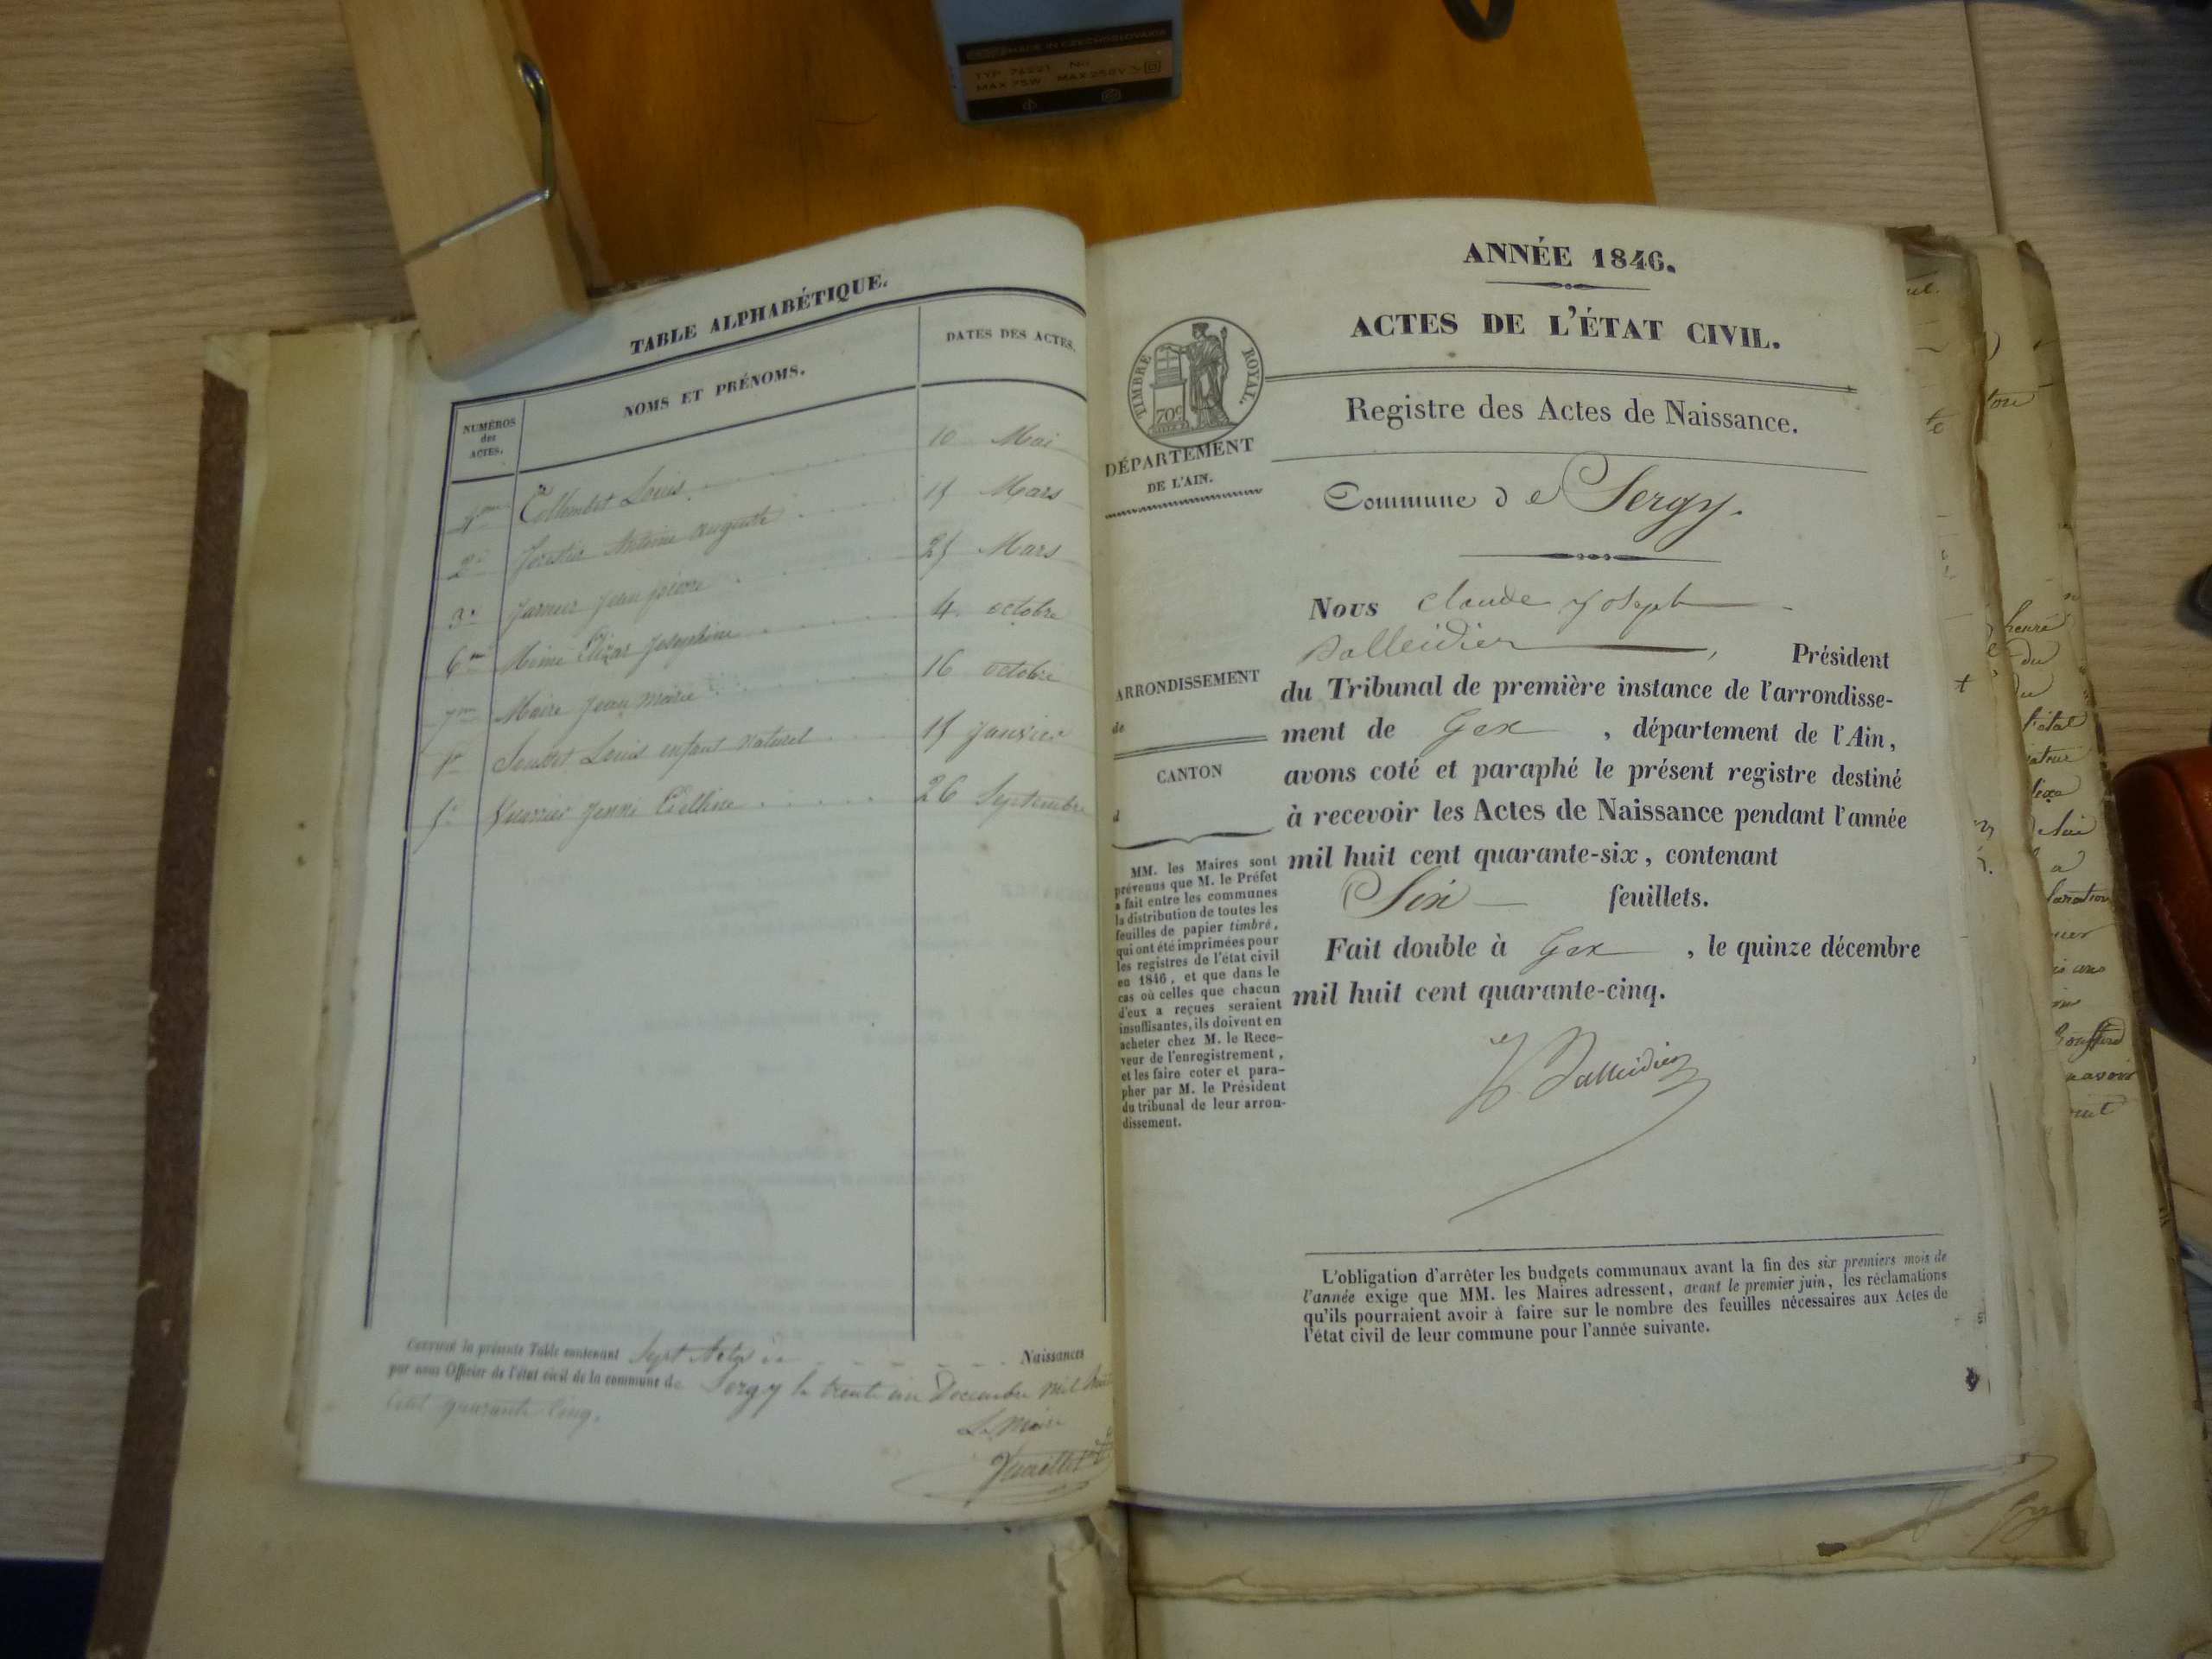 MADE IN CZECHOSLOVAKIA
TYP 76221 No
MAX 75W MAX 250V
TABLE ALPHABÉTIQUE.
NUMÉROS des ACTES.
NOMS ET PRÉNOMS.
DATES DES ACTES.
4me Collombet Louis 10 Mai
2e Antoine auguste 15 Mars
3e jean pierre 25 Mars
6me Josephine 4 octobre
7me Maire Jean marie 16 octobre
1er Louis enfant naturel 15 janvier
5e jenni 26 Septembre
Certifié la présente Table contenant Sept Actes de Naissances
par nous Officier de l'état civil de la commune de Sergy le trente un Decembre mil huit
Cent quarante Cinq.
Le Maire
ANNÉE 1846.
ACTES DE L'ÉTAT CIVIL.
TIMBRE ROYAL.
70c
DÉPARTEMENT
DE L'AIN.
Registre des Actes de Naissance.
Commune de Sergy.
ARRONDISSEMENT
de
CANTON
d
MM. les Maires sont
prévenus que M. le Préfet
a fait entre les communes
la distribution de toutes les
feuilles de papier timbré,
qui ont été imprimées pour
les registres de l'état civil
en 1846, et que dans le
cas où celles que chacun
d'eux a reçues seraient
insuffisantes, ils doivent en
acheter chez M. le Rece-
veur de l'enregistrement,
et les faire coter et para-
pher par M. le Président
du tribunal de leur arron-
dissement.
Nous claude joseph
Balleidier, Président
du Tribunal de première instance de l'arrondisse-
ment de Gex, département de l'Ain,
avons coté et paraphé le présent registre destiné
à recevoir les Actes de Naissance pendant l'année
mil huit cent quarante-six, contenant
Six feuillets.
Fait double à Gex, le quinze décembre
mil huit cent quarante-cinq.
Balleidier
L'obligation d'arrêter les budgets communaux avant la fin des six premiers mois de
l'année exige que MM. les Maires adressent, avant le premier juin, les réclamations
qu'ils pourraient avoir à faire sur le nombre des feuilles nécessaires aux Actes de
l'état civil de leur commune pour l'année suivante.